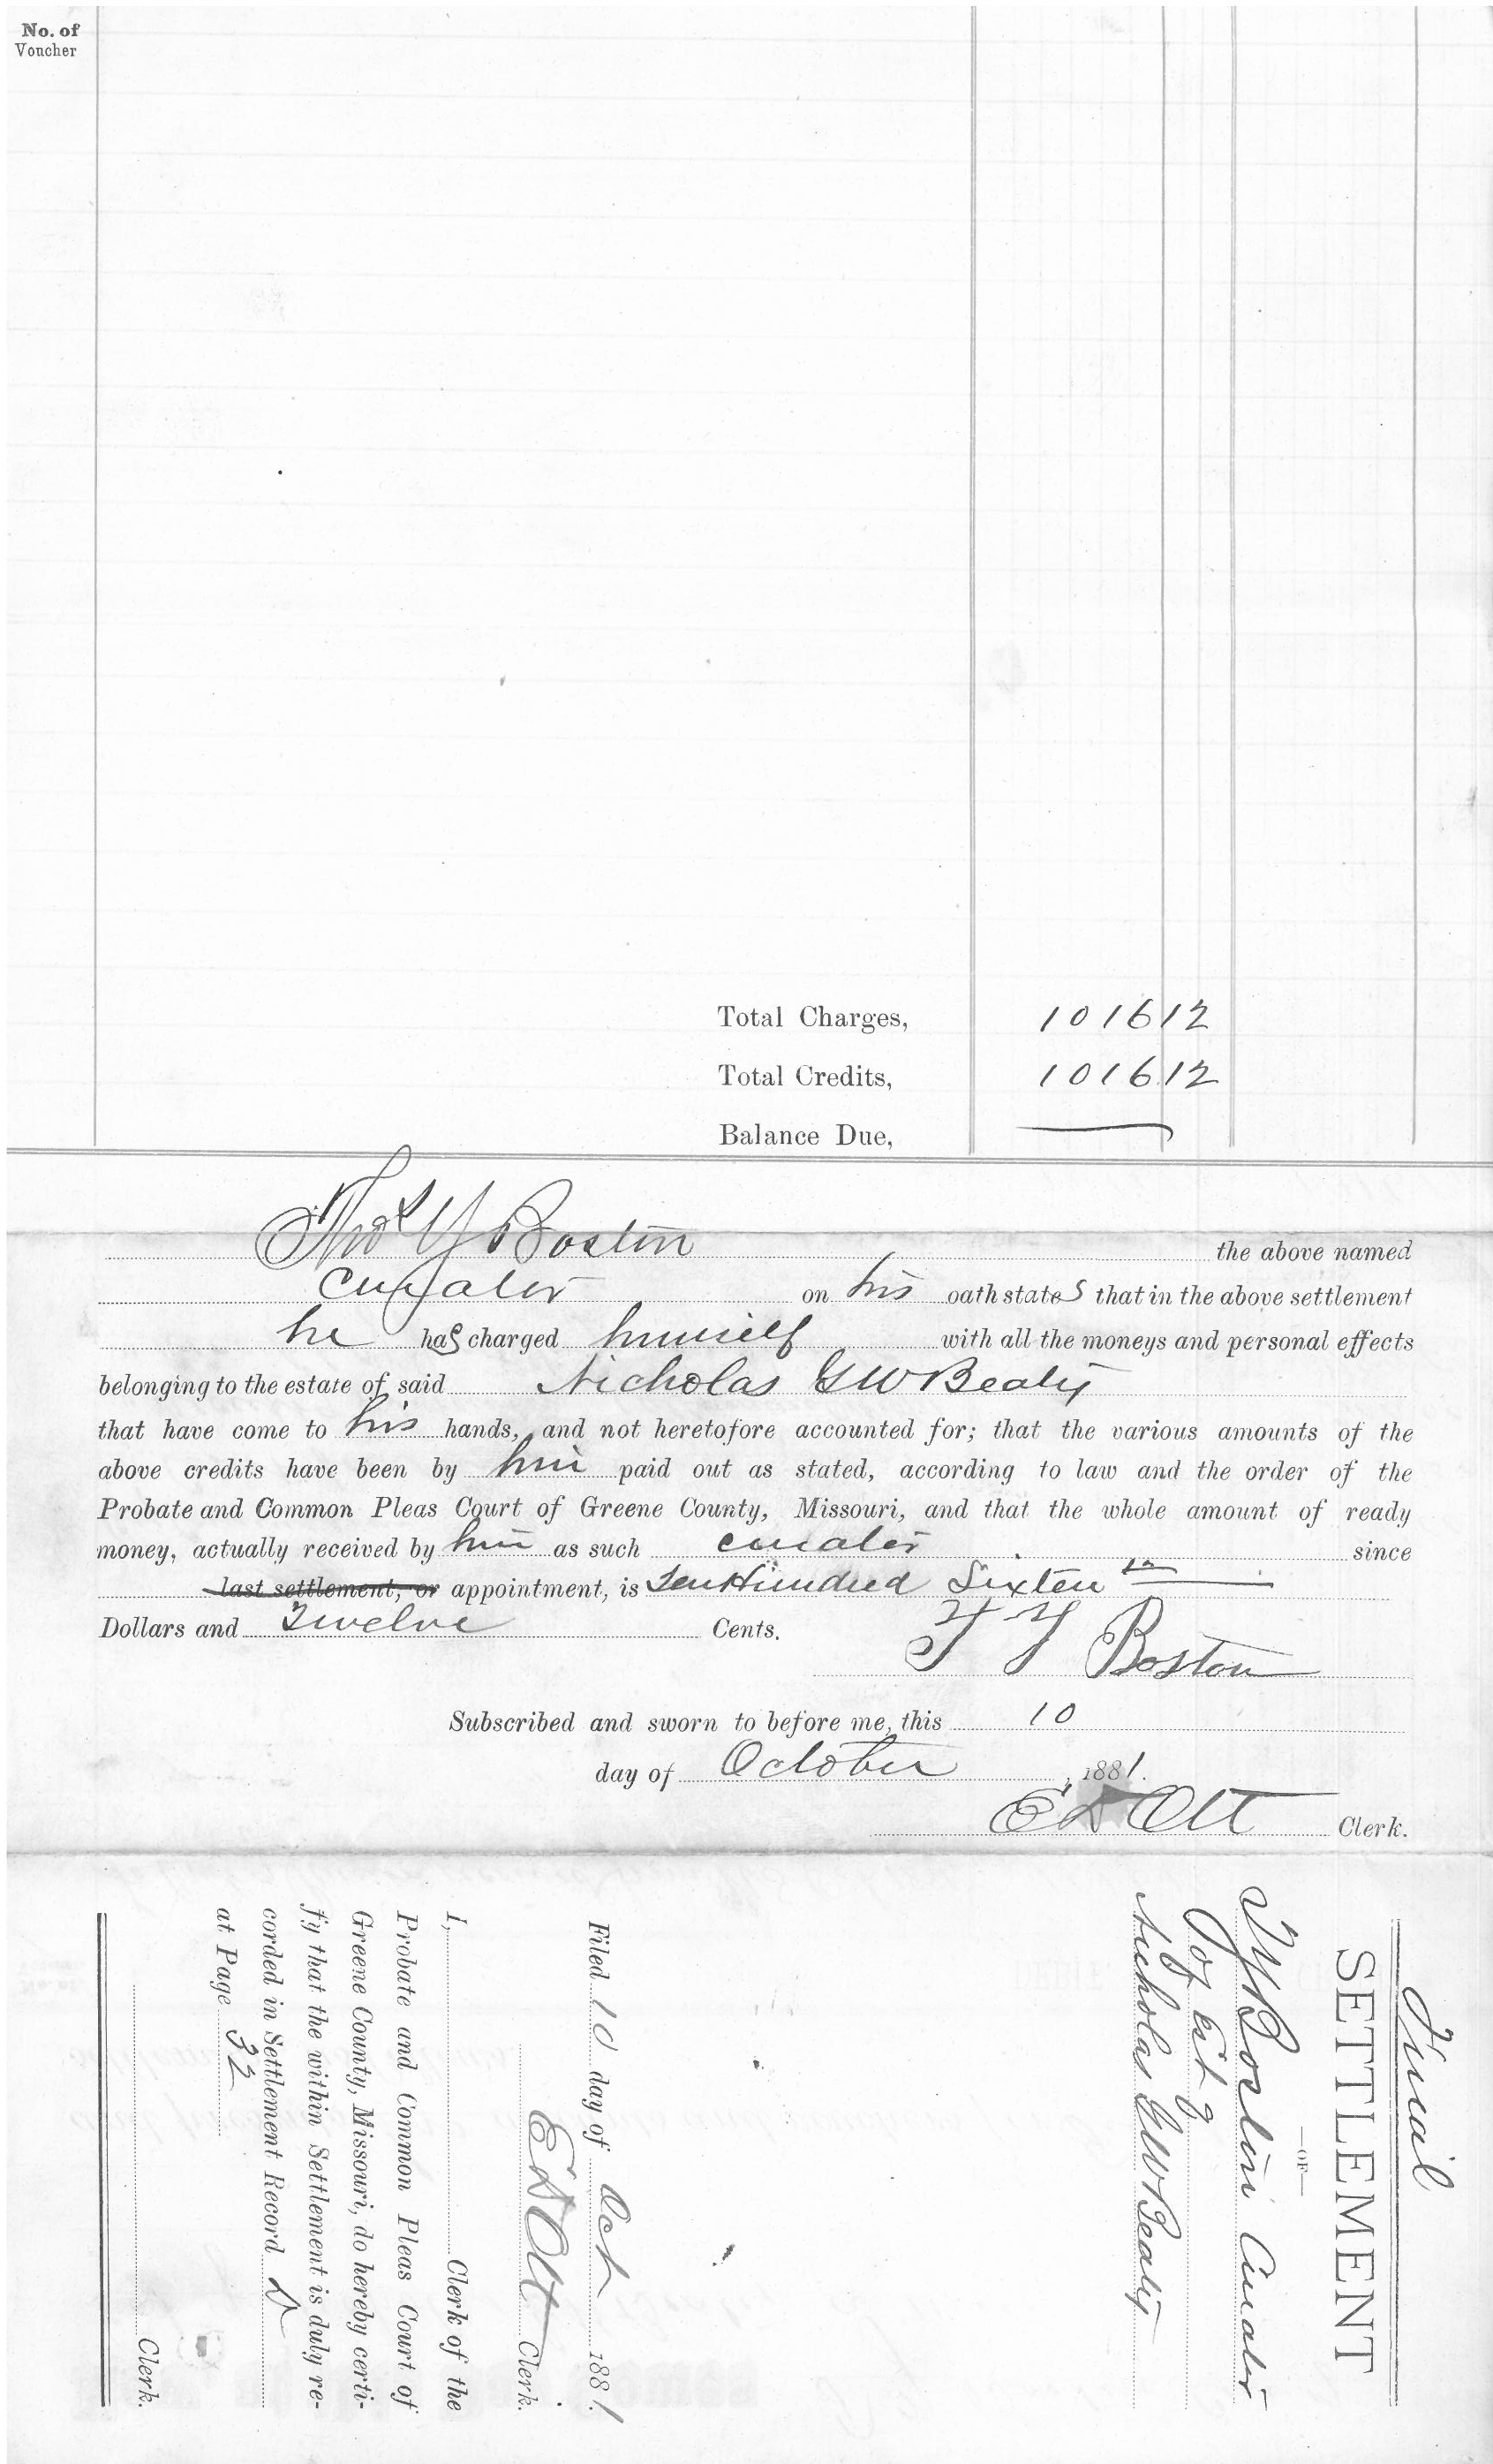 No. of
Voucher
Total Charges, 1016 12
Total Credits, 1016.12
Balance Due,
Thos Y Boston the above named
Curator on his oath states that in the above settlement
he has charged himself with all the moneys and personal effects
belonging to the estate of said Nicholas G W Beaty
that have come to his hands, and not heretofore accounted for; that the various amounts of the
above credits have been by him paid out as stated, according to law and the order of the
Probate and Common Pleas Court of Greene County, Missouri, and that the whole amount of ready
money, actually received by him as such curator since
last settlement, or appointment, is Ten Hundred Sixteen
Dollars and Twelve Cents.
T Y Boston
Subscribed and sworn to before me, this 10
day of October, 1881.
E D Ott Clerk.
Final
SETTLEMENT
—OF—
T Y Boston Curator
of Est of
Nicholas G W Beaty
Filed 10 day of Oct 1881.
E D Ott Clerk.
I, Clerk of the
Probate and Common Pleas Court of
Greene County, Missouri, do hereby certi-
fy that the within Settlement is duly re-
corded in Settlement Record
at Page 32
Clerk.